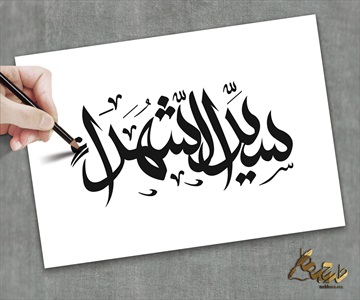 سيد الشهداء